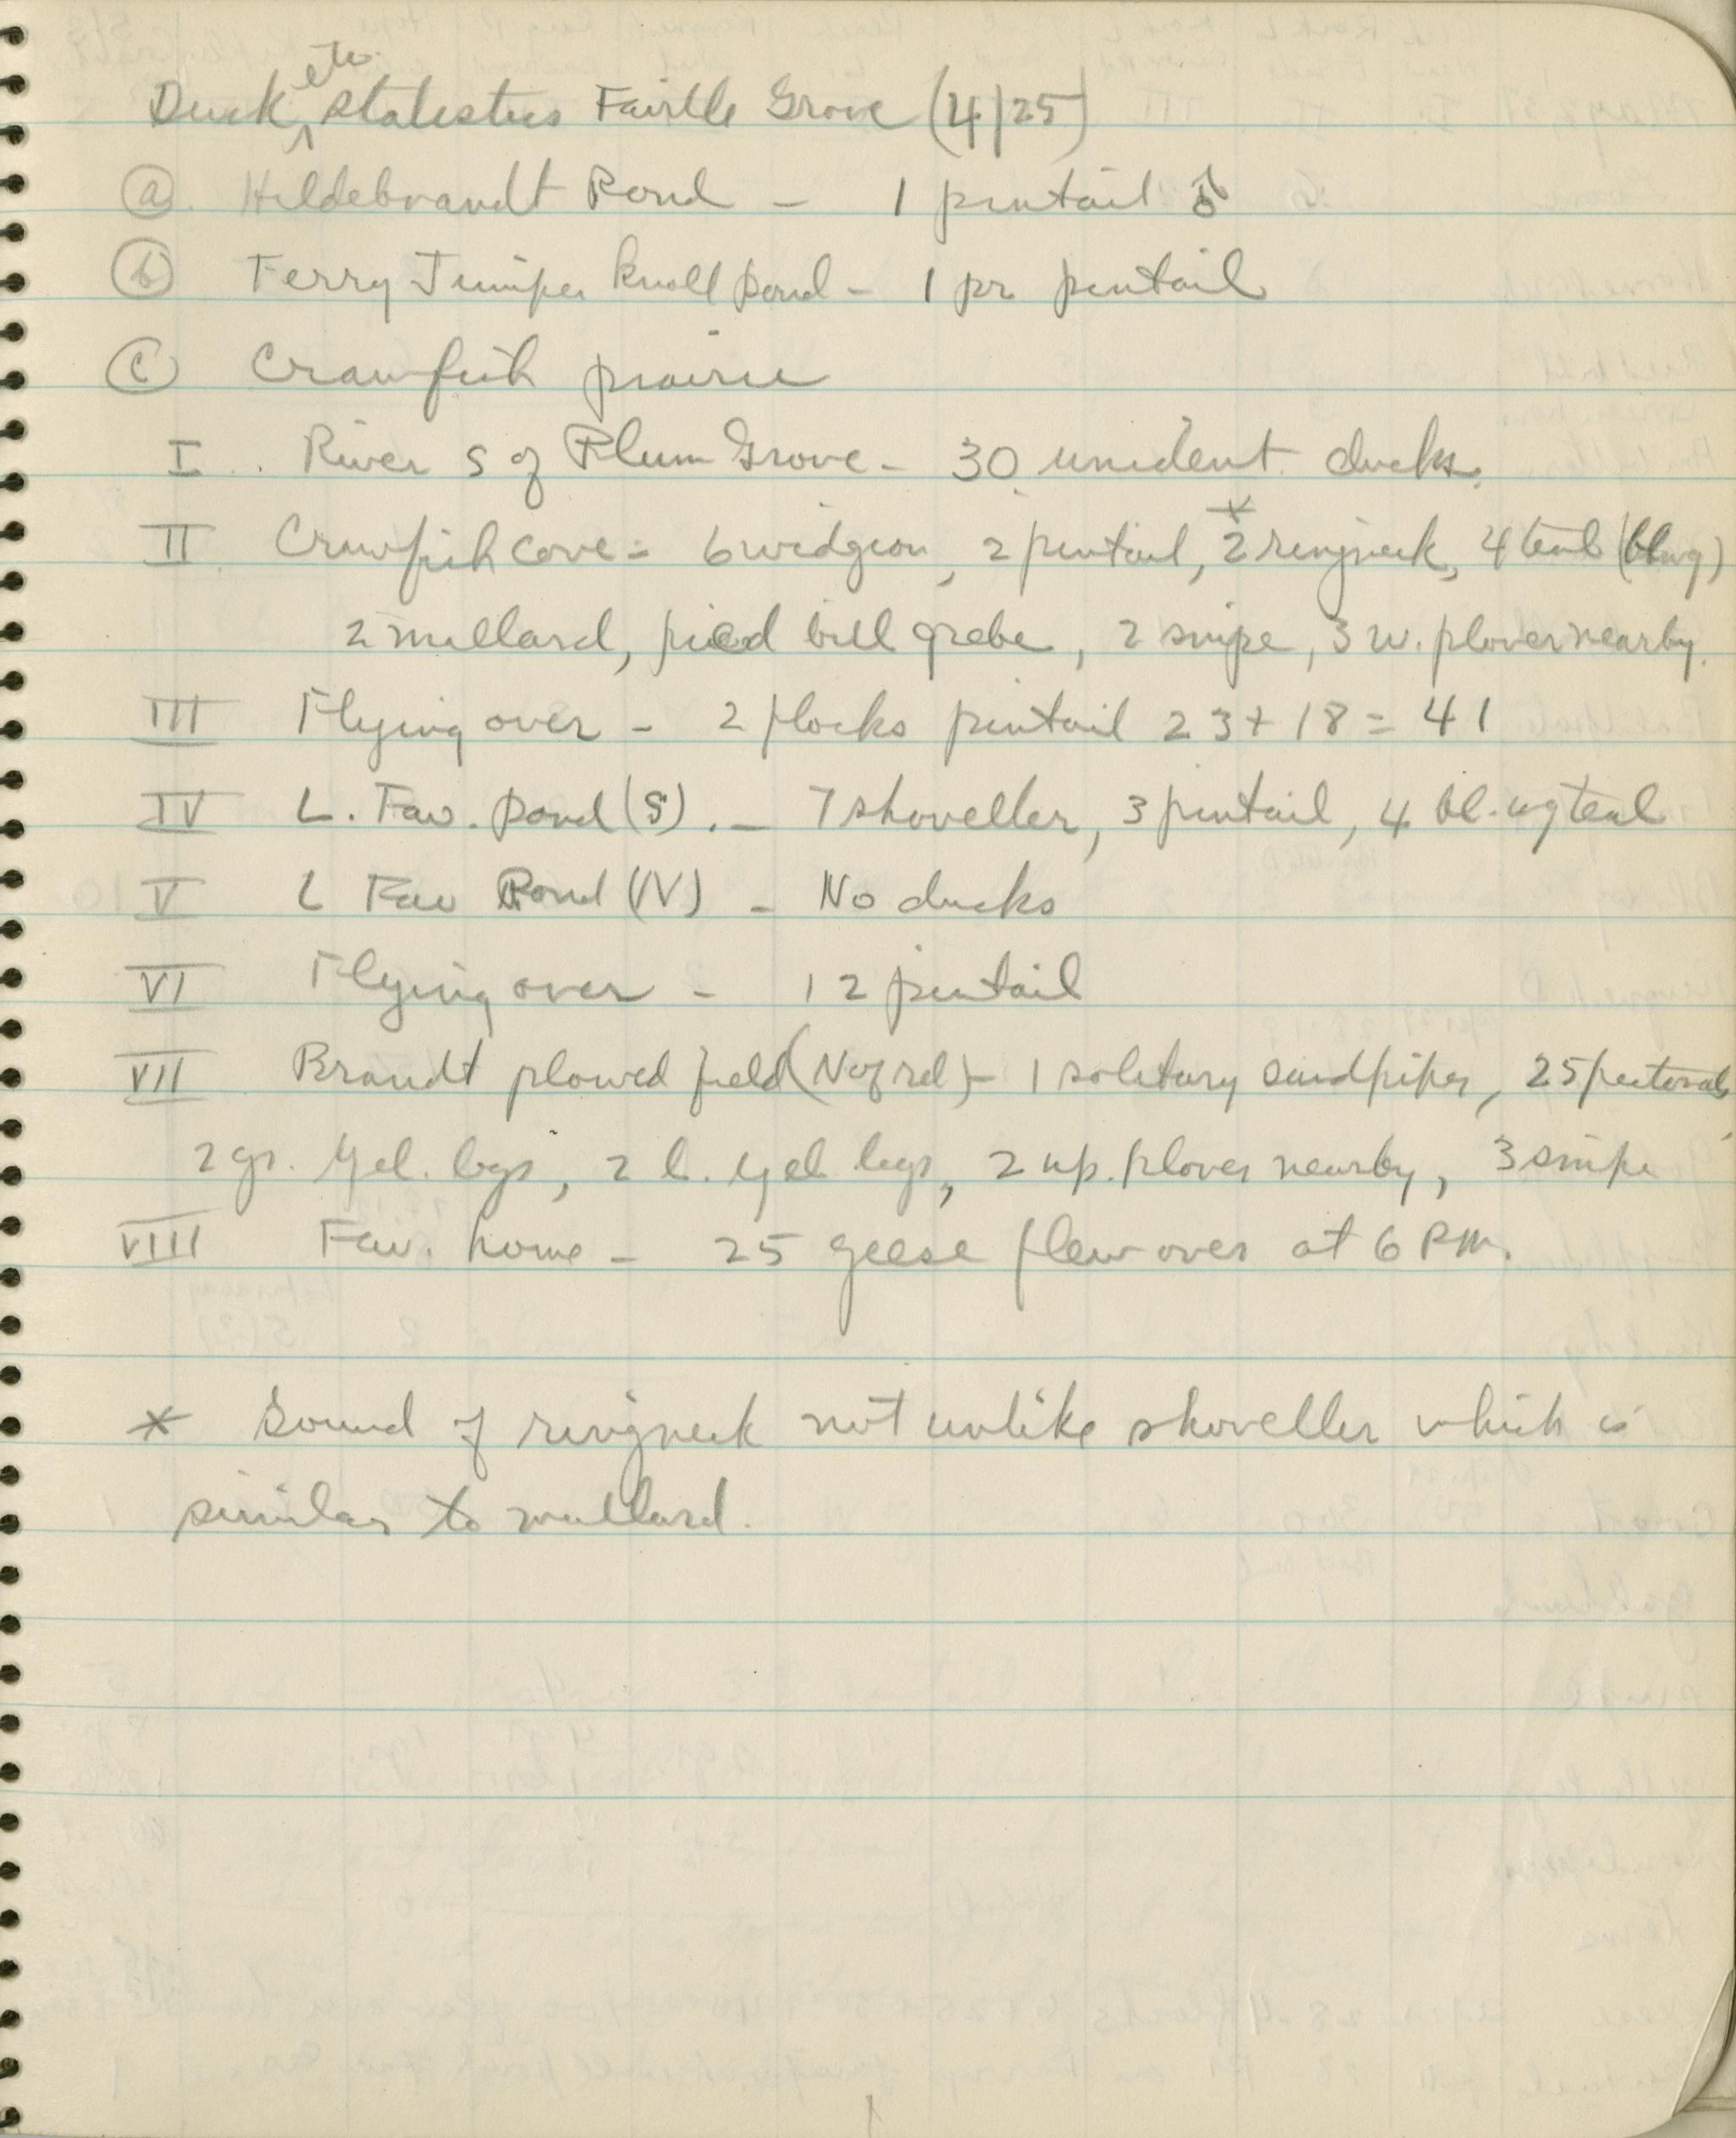 Duck etc. statistics Fairlle Grove (4/25)
a. Hildebrandt Pond - 1 pintail ♂
b Ferry Juniper Knoll pond - 1 pr pintail
c Crawfish prairie
I. River S of Plum Grove - 30 unident. ducks.
II Crawfish cove - 6 widgeon, 2 pintail, *2 ringneck, 4 teal (blwg)
2 mallard, pied bill grebe, 2 snipe, 3 u. plover nearby.
III Flying over - 2 flocks pintail 23 + 18 = 41
IV L. Fav. pond (S). - 7 shoveller, 3 pintail, 4 bl. wg teal
V L Fav Pond (N) - No ducks
VI Flying over - 12 pintail
VII Brandt plowed field (N of rd) - 1 solitary sandpiper, 25 pectorals,
2 gr. yel. legs, 2 l. yel legs, 2 up. plover nearby, 3 snipe
VIII Fav. home - 25 geese flew over at 6 P.M.
* Sound of ringneck not unlike shoveller which is
similar to mallard.